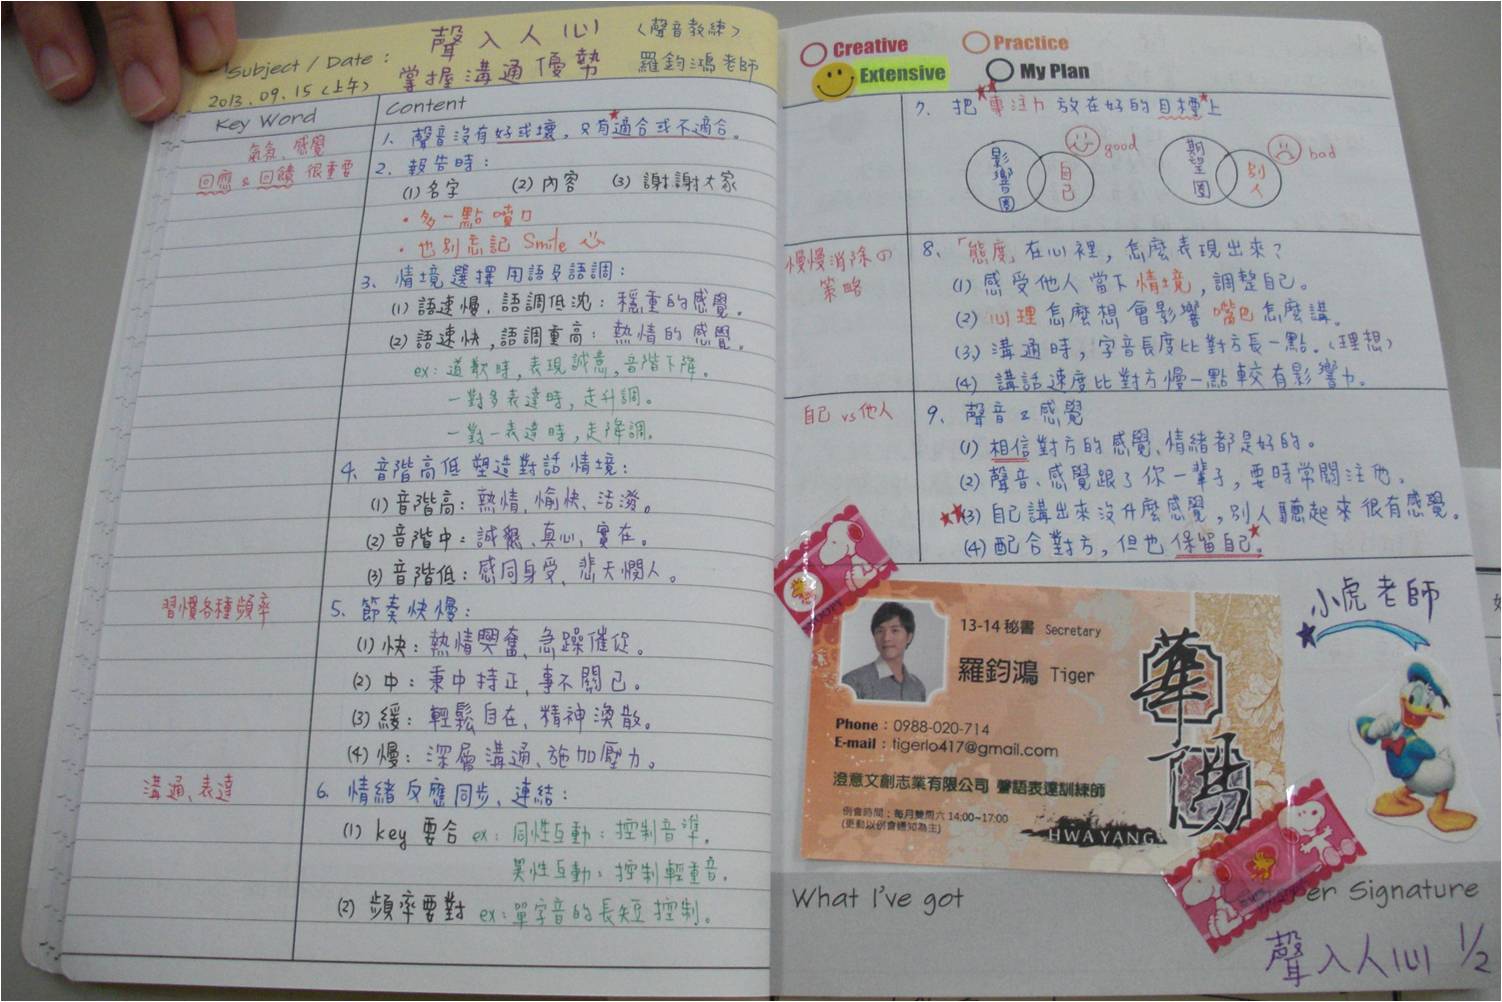 Subject / Date :
聲入人心
(聲音教練)
掌握溝通優勢
羅鈞鴻老師
2013.09.15(上午)
Key Word
Content
氣氛、感覺
回應 & 回饋 很重要
1. 聲音沒有好或壞，只有適合或不適合。
2. 報告時：
(1) 名字 (2) 內容 (3) 謝謝大家
• 多一點噴口
• 也別忘記 Smile
3. 情境選擇用語及語調：
(1) 語速慢，語調低沈：穩重的感覺。
(2) 語速快，語調重高：熱情的感覺。
ex: 道歉時，表現誠意，音階下降。
一對多表達時，走升調。
一對一表達時，走降調。
4. 音階高低塑造對話情境：
(1) 音階高：熱情、愉快、活潑。
(2) 音階中：誠懇、真心、實在。
(3) 音階低：感同身受、悲天憫人。
習慣各種頻率
5. 節奏快慢：
(1) 快：熱情興奮、急躁催促。
(2) 中：秉中持正、事不關己。
(3) 緩：輕鬆自在、精神渙散。
(4) 慢：深層溝通、施加壓力。
溝通、表達
6. 情緒反應同步、連結：
(1) key 要合 ex: 同性互動：控制音準。
異性互動：控制輕重音。
(2) 頻率要對 ex: 單字音的長短控制。
Creative
Practice
Extensive
My Plan
7. 把專注力放在好的目標上
影響圈 自己 good
期望圈 別人 bad
慢慢消除の
策略
8.「態度」在心裡，怎麼表現出來？
(1) 感受他人當下情境，調整自己。
(2) 心理怎麼想會影響嘴巴怎麼講。
(3) 溝通時，字音長度比對方長一點。(理想)
(4) 講話速度比對方慢一點較有影響力。
自己 vs 他人
9. 聲音之感覺
(1) 相信對方的感覺、情緒都是好的。
(2) 聲音、感覺跟了你一輩子，要時常關注他。
(3) 自己講出來沒什麼感覺，別人聽起來很有感覺。
(4) 配合對方，但也保留自己。
小虎老師
13-14 秘書 Secretary
羅鈞鴻 Tiger
華陽
Phone：0988-020-714
E-mail：tigerlo417@gmail.com
澄意文創志業有限公司 聲語表達訓練師
例會時間：每月雙周六 14:00~17:00
(更動以例會通知為主)
HWAYANG
What I've got
Signature
聲入人心 1/2